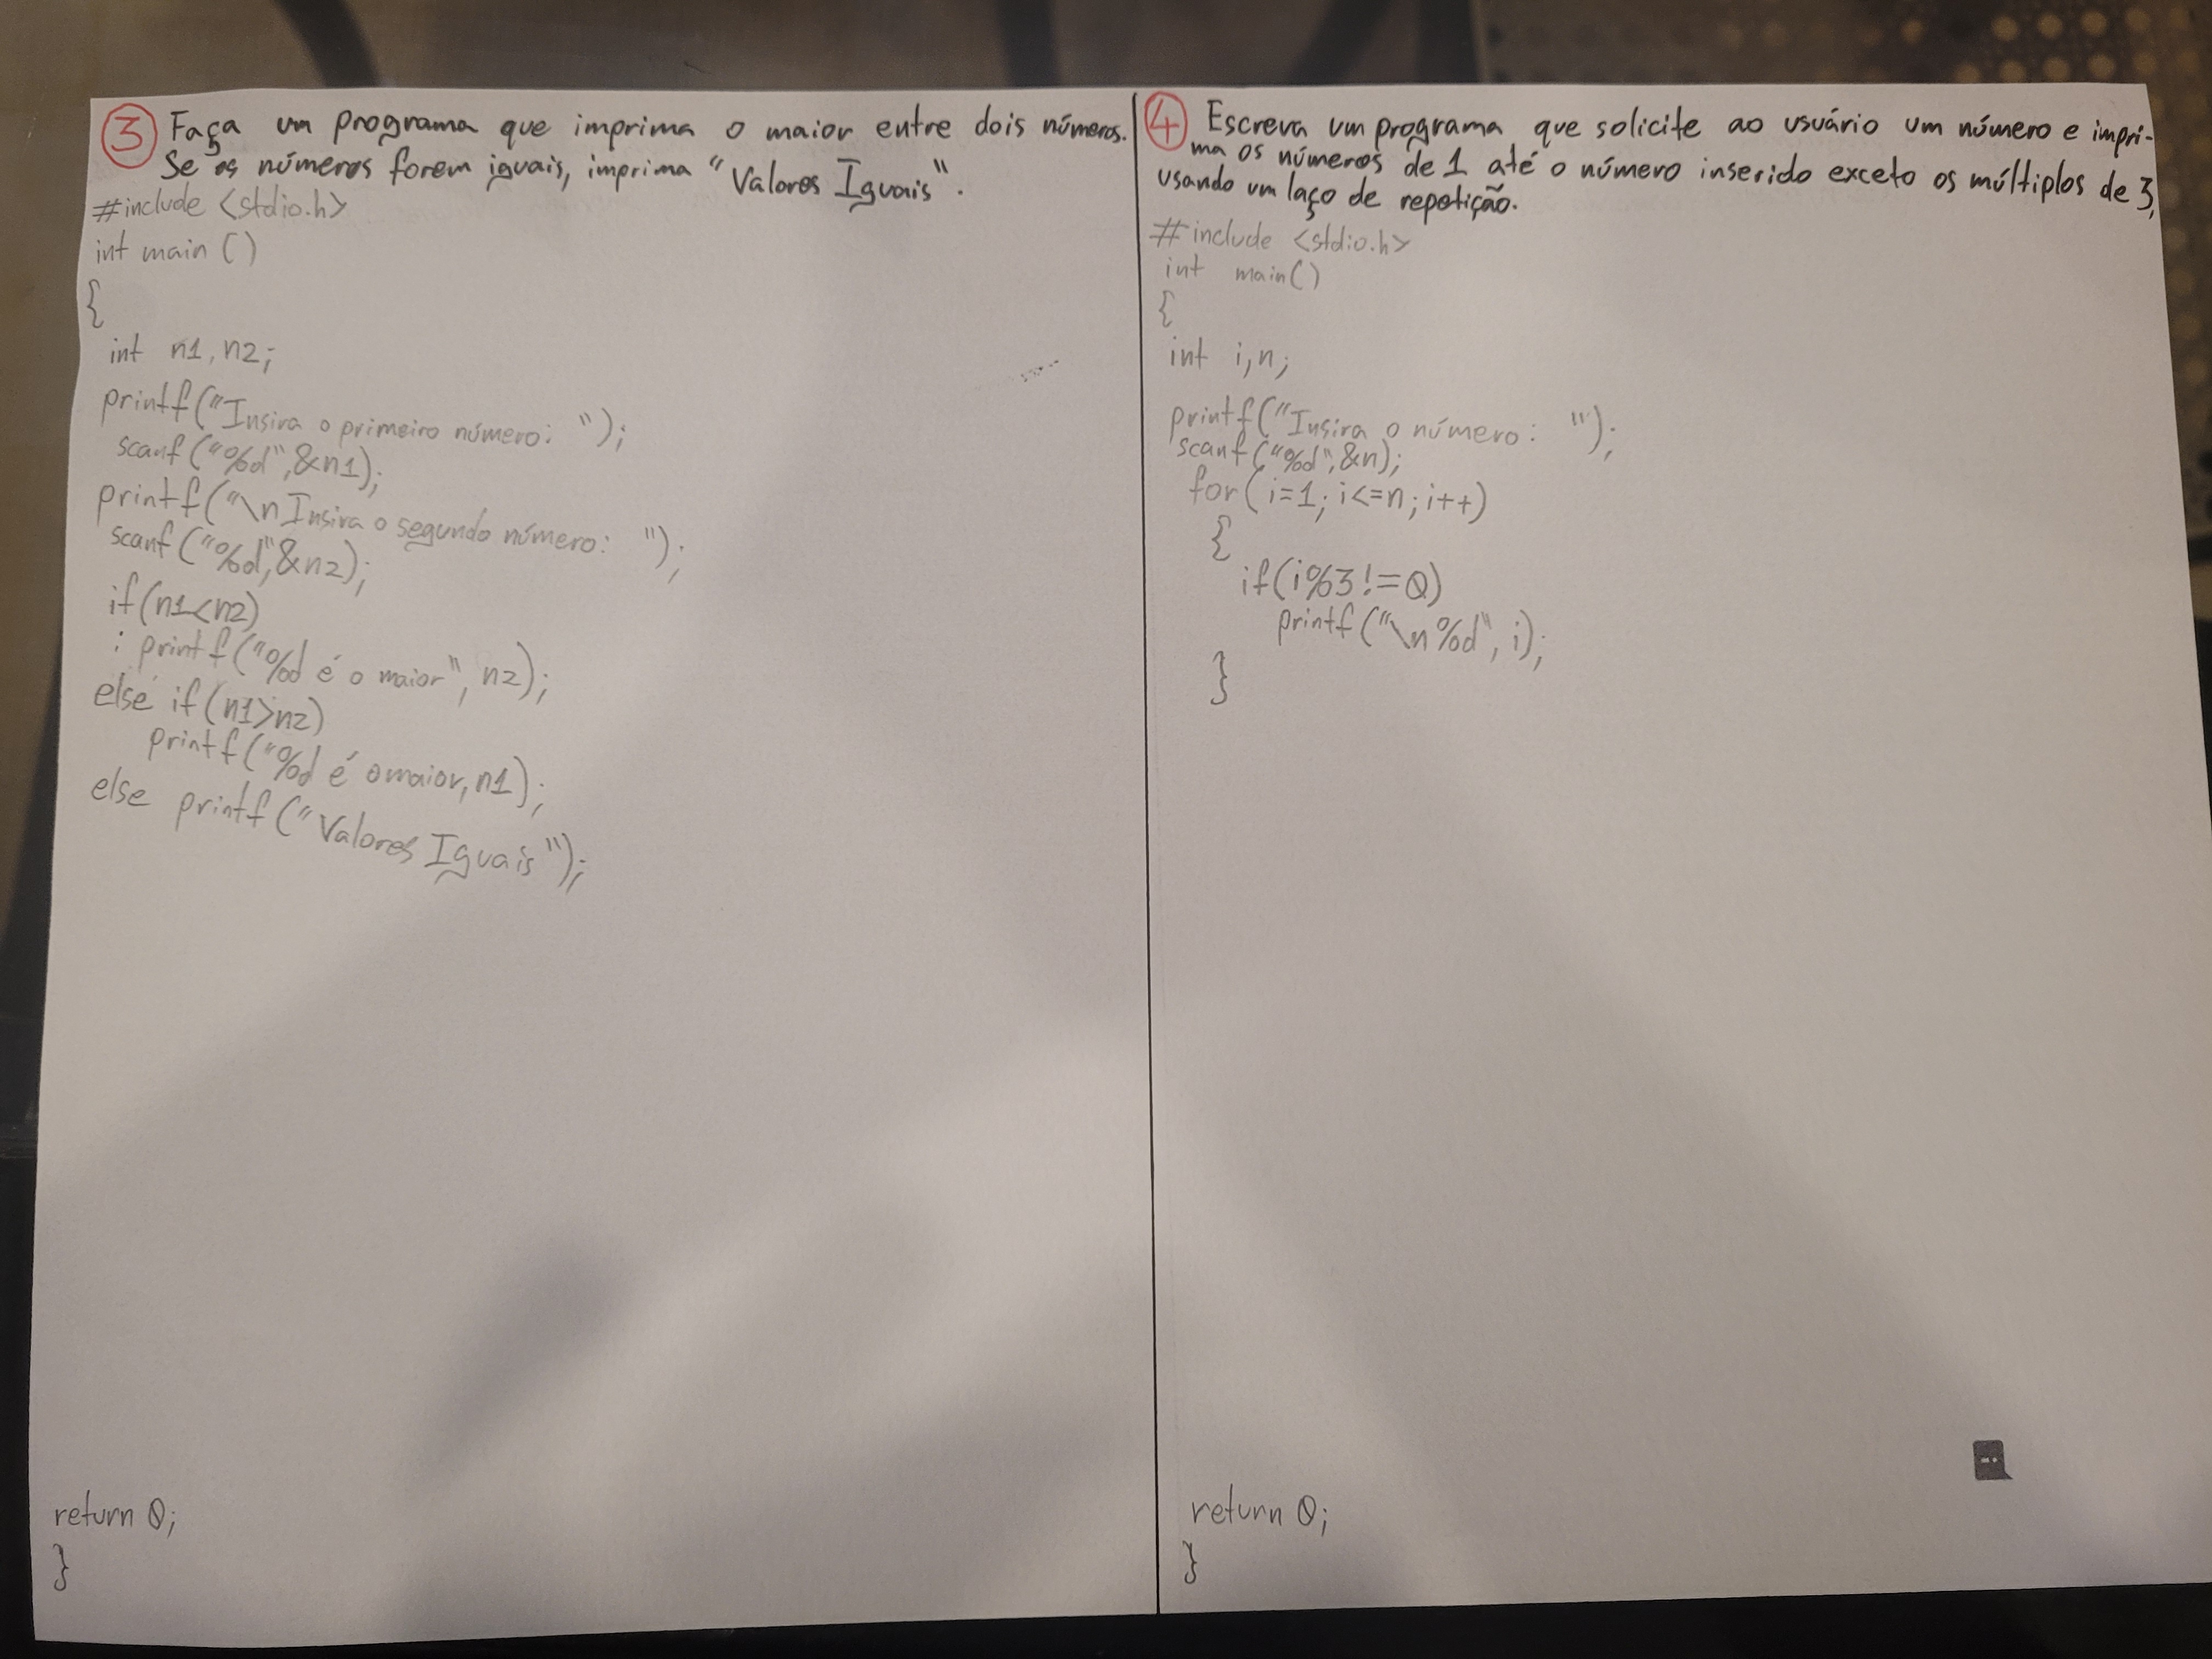 3 Faça um programa que imprima o maior entre dois números.
Se os números forem iguais, imprima "Valores Iguais".
#include <stdio.h>
int main()
{
int n1, n2;
printf("Insira o primeiro número: ");
scanf("%d",&n1);
printf("\nInsira o segundo número: ");
scanf("%d",&n2);
if(n1<n2)
printf("%d é o maior", n2);
else if(n1>n2)
printf("%d é o maior, n1);
else printf("Valores Iguais");
return 0;
}
4 Escreva um programa que solicite ao usuário um número e impri-
ma os números de 1 até o número inserido exceto os múltiplos de 3,
usando um laço de repetição.
#include <stdio.h>
int main()
{
int i,n;
printf("Insira o número: ");
scanf("%d",&n);
for(i=1; i<=n; i++)
{
if(i%3!=0)
printf("\n%d", i);
}
return 0;
}